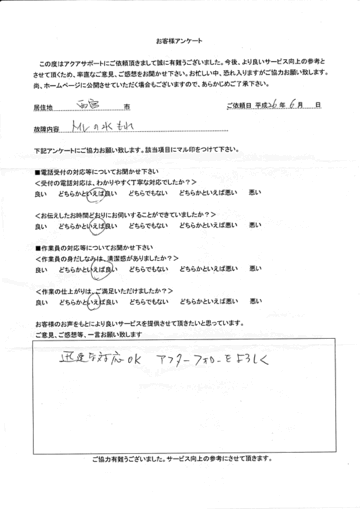 お客様アンケート
この度はアクアサポートにご依頼頂きまして誠に有難うございました。今後、より良いサービス向上の参考と
させて頂くため、率直なご意見、ご感想をお聞かせ下さい。お忙しい中、恐れ入りますがご協力お願い致します。
尚、ホームページに公開させていただく場合もございますので、あらかじめご了承下さい。
居住地 西宮 市 ご依頼日 平成26年 6月 日
故障内容 トイレの水もれ
下記アンケートにご協力お願い致します。該当項目にマル印をつけて下さい。
■電話受付の対応等についてお聞かせ下さい
＜受付の電話対応は、わかりやすく丁寧な対応でしたか？＞
良い どちらかといえば良い どちらでもない どちらかといえば悪い 悪い
＜お伝えしたお時間どおりにお伺いすることができていましたか？＞
良い どちらかといえば良い どちらでもない どちらかといえば悪い 悪い
■作業員の対応等についてお聞かせ下さい
＜作業員の身だしなみは、清潔感がありましたか？＞
良い どちらかといえば良い どちらでもない どちらかといえば悪い 悪い
＜作業の仕上がりは、ご満足いただけましたか？＞
良い どちらかといえば良い どちらでもない どちらかといえば悪い 悪い
お客様のお声をもとにより良いサービスを提供させて頂きたいと思っています。
ご意見、ご感想等、一言お願い致します
迅速な対応OK アフターフォローをよろしく
ご協力有難うございました。サービス向上の参考にさせて頂きます。